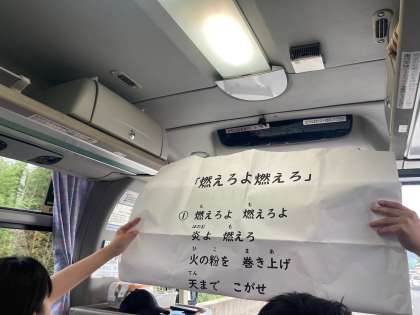 「燃えろよ燃えろ」
① 燃えろよ 燃えろよ
炎よ 燃えろ
火の粉を 巻き上げ
天まで こがせ